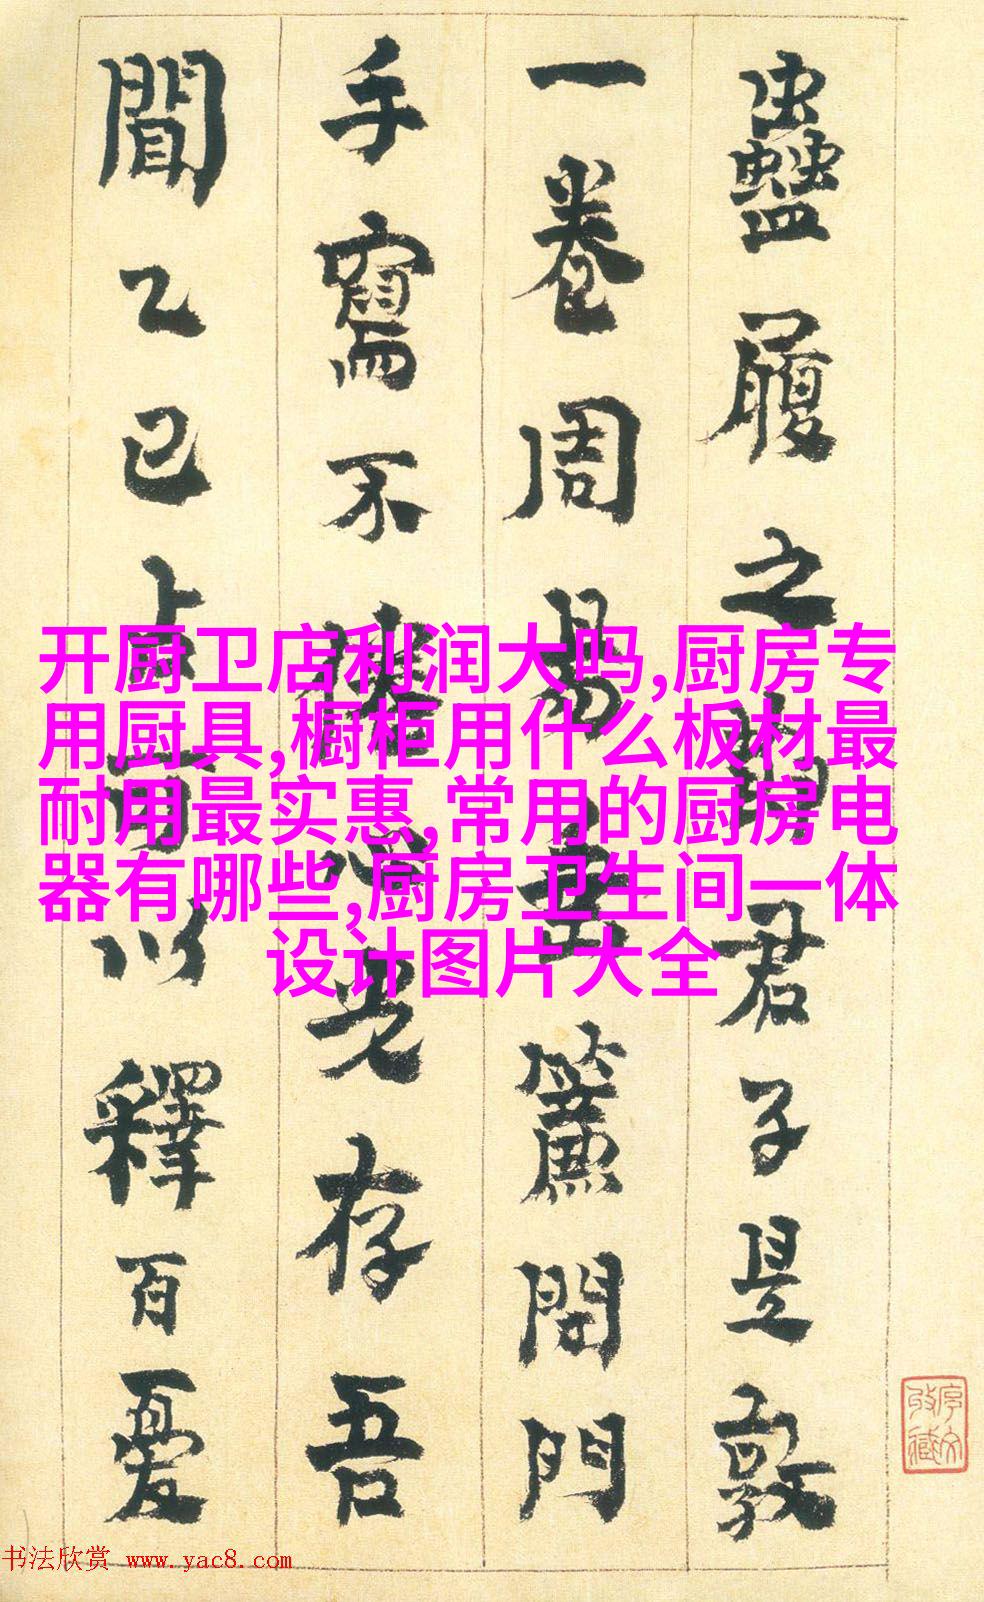 蠱履之間君子是敦
一卷周易簾閉門
手寫不心存吾
聞乙巳占可以釋百憂
开厨卫店利润大吗,厨房专
用厨具,橱柜用什么板材最
耐用最实惠,常用的厨房电
器有哪些,厨房卫生间一体
设计图片大全
书法欣赏 www.yac8.com